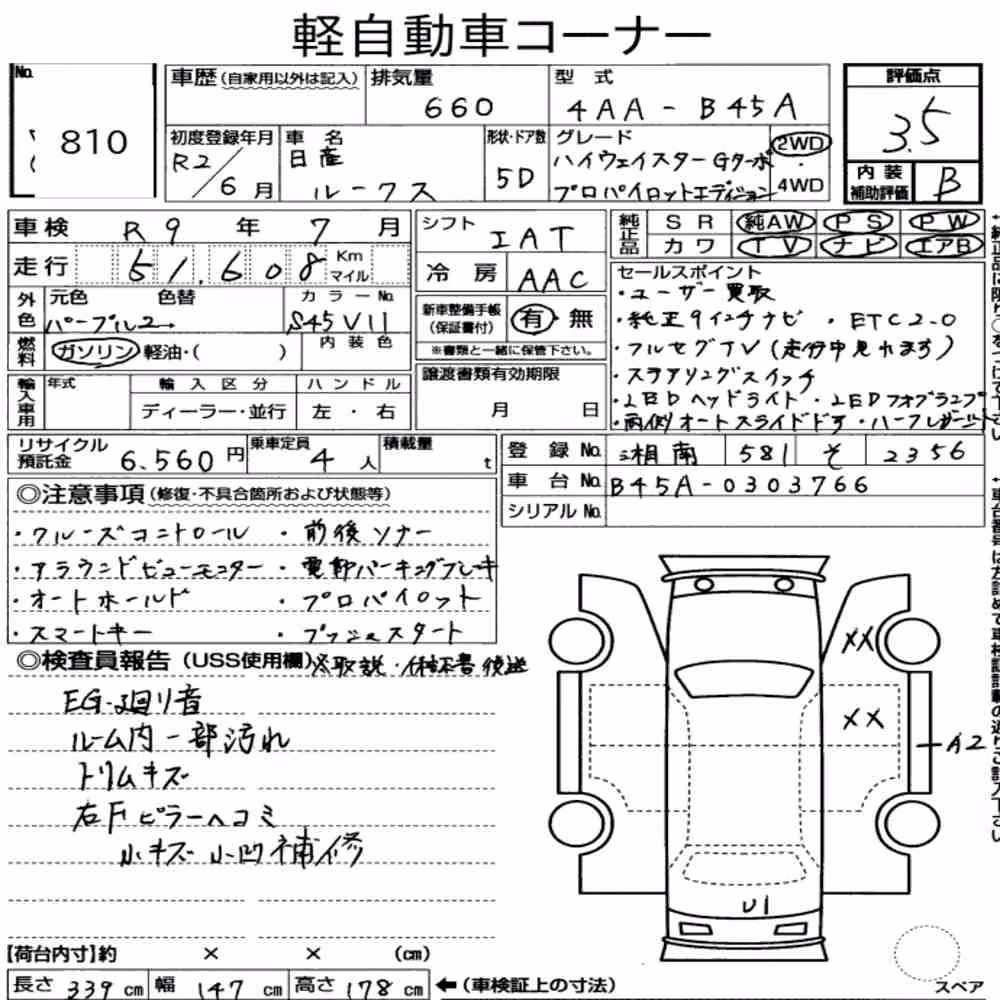 軽自動車コーナー
No.
810
車歴(自家用以外は記入)
排気量
660
型式
4AA-B45A
評価点
3.5
初度登録年月
R2/6月
車名
日産
ルークス
形状・ドア数
5D
グレード
ハイウェイスターGターボ
プロパイロットエディション
2WD
・
4WD
内装
補助評価
B
車検 R9年 7月
走行 51,608 Km マイル
シフト
IAT
冷房 AAC
純正品
SR 純AW PS PW
カワ TV ナビ エアB
外色
元色 色替
パープル2→
カラーNo.
S45V11
燃料
ガソリン 軽油・( )
内装色
新車整備手帳
(保証書付)
有・無
※書類と一緒に保管下さい。
セールスポイント
・ユーザー買取
・純正9インチナビ ・ETC2.0
・フルセグTV(走行中見れます)
・ステアリングスイッチ
・LEDヘッドライト・LEDフォグランプ
・両側オートスライドドア・ハーフレザーシート
輸入車用
年式
輸入区分
ディーラー・並行
ハンドル
左・右
譲渡書類有効期限
月 日
リサイクル
預託金
6,560円
乗車定員
4人
積載量
t
登録No. 湘南 581 そ 2356
車台No. B45A-0303766
シリアルNo.
◎注意事項(修復・不具合箇所および状態等)
・クルーズコントロール ・前後ソナー
・アラウンドビューモニター ・電動パーキングブレーキ
・オートホールド ・プロパイロット
・スマートキー ・プッシュスタート
◎検査員報告(USS使用欄)※取説・保証書後送
EG廻り音
ルーム内一部汚れ
トリムキズ
右Fピラーヘコミ
小キズ小凹補修
XX
XX
A2
U1
スペア
【荷台内寸】約 × × (cm)
長さ 339cm 幅 147cm 高さ 178cm ←(車検証上の寸法)